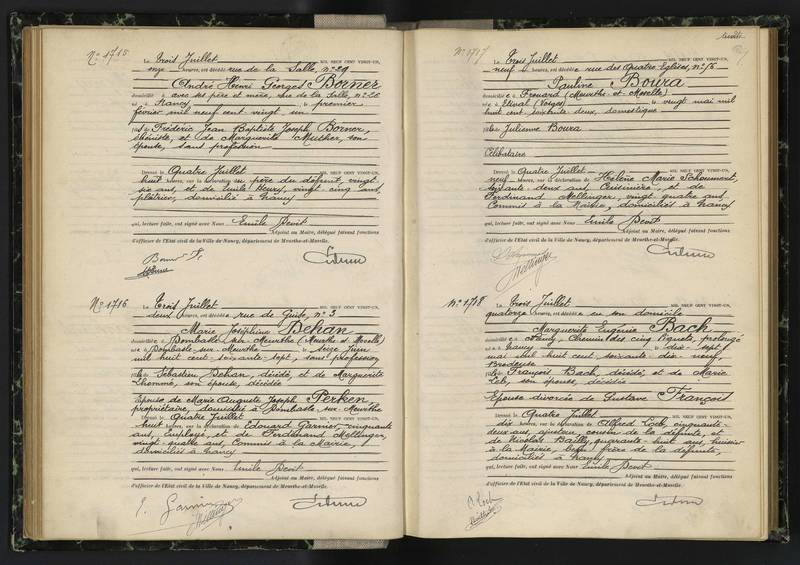 N° 1715
Le Trois Juillet MIL NEUF CENT VINGT-UN,
onze heures, est décédé rue de la Salle, n° 29
André Henri Georges Borner
domicilié avec ses père et mère, rue de la Salle, n° 29
né à Nancy le premier
février mil neuf cent vingt un
fils de Frédéric Jean Baptiste Joseph Borner,
ébéniste, et de Marguerite Muther, son
épouse, sans profession
Dressé le Quatre Juillet MIL NEUF CENT VINGT-UN,
huit heures, sur la déclaration du père du défunt, vingt
six ans, et de Emile Henry, vingt cinq ans,
plâtrier, domicilié à Nancy
qui, lecture faite, ont signé avec Nous Emile Devit
Adjoint au Maire, délégué faisant fonctions
d'officier de l'Etat civil de la Ville de Nancy, département de Meurthe-et-Moselle.
Borner F.
N° 1716
Le Trois Juillet MIL NEUF CENT VINGT-UN,
deux heures, est décédée rue de Guise, n° 3
Marie Joséphine Dehan
domiciliée à Dombasle sur Meurthe (Meurthe et Moselle)
née à Dombasle sur Meurthe le seize Juin
mil huit cent soixante-sept, sans profession
fille de Sébastien Dehan, décédé, et de Marguerite
Lhommé, son épouse, décédée
Epouse de Marie Auguste Joseph Perken,
propriétaire, domicilié à Dombasle sur Meurthe
Dressé le Quatre Juillet MIL NEUF CENT VINGT-UN,
huit heures, sur la déclaration de Edouard Garnier, cinquante
ans, employé, et de Ferdinand Mellinger,
vingt quatre ans, Commis à la Mairie,
domiciliés à Nancy
qui, lecture faite, ont signé avec Nous Emile Devit
Adjoint au Maire, délégué faisant fonctions
d'officier de l'Etat civil de la Ville de Nancy, département de Meurthe-et-Moselle.
Garnier
Mellinger
N° 1717
Le Trois Juillet MIL NEUF CENT VINGT-UN,
neuf heures, est décédée rue des Quatre Eglises, n° 56
Pauline Boura
domiciliée à Frouard (Meurthe et Moselle)
née à Etival (Vosges) le vingt mai mil
huit cent soixante deux, domestique
fille de Julienne Boura
Célibataire
Dressé le Quatre Juillet MIL NEUF CENT VINGT-UN,
neuf heures, sur la déclaration de Hélène Marie Schoumert,
soixante deux ans, Cuisinière, et de
Ferdinand Mellinger, vingt quatre ans,
Commis à la Mairie, domiciliés à Nancy
qui, lecture faite, ont signé avec Nous Emile Devit
Adjoint au Maire, délégué faisant fonctions
d'officier de l'Etat civil de la Ville de Nancy, département de Meurthe-et-Moselle.
Mellinger
N° 1718
Le Trois Juillet MIL NEUF CENT VINGT-UN,
quatorze heures, est décédée en son domicile
Marguerite Eugénie Bach
domiciliée à Nancy Chemin des cinq Piquets, prolongé
née à Nancy le dix sept
mai mil huit cent soixante dix neuf,
Brodeuse
fille de François Bach, décédé, et de Marie
Loch, son épouse, décédée
Epouse divorcée de Gustave François
Dressé le Quatre Juillet MIL NEUF CENT VINGT-UN,
dix heures, sur la déclaration de Alfred Loch, cinquante
deux ans, ajusteur, cousin de la défunte, et
de Nicolas Bailly, quarante huit ans, huissier
à la Mairie, beau frère de la défunte,
domiciliés à Nancy
qui, lecture faite, ont signé avec Nous Emile Devit
Adjoint au Maire, délégué faisant fonctions
d'officier de l'Etat civil de la Ville de Nancy, département de Meurthe-et-Moselle.
A. Loch